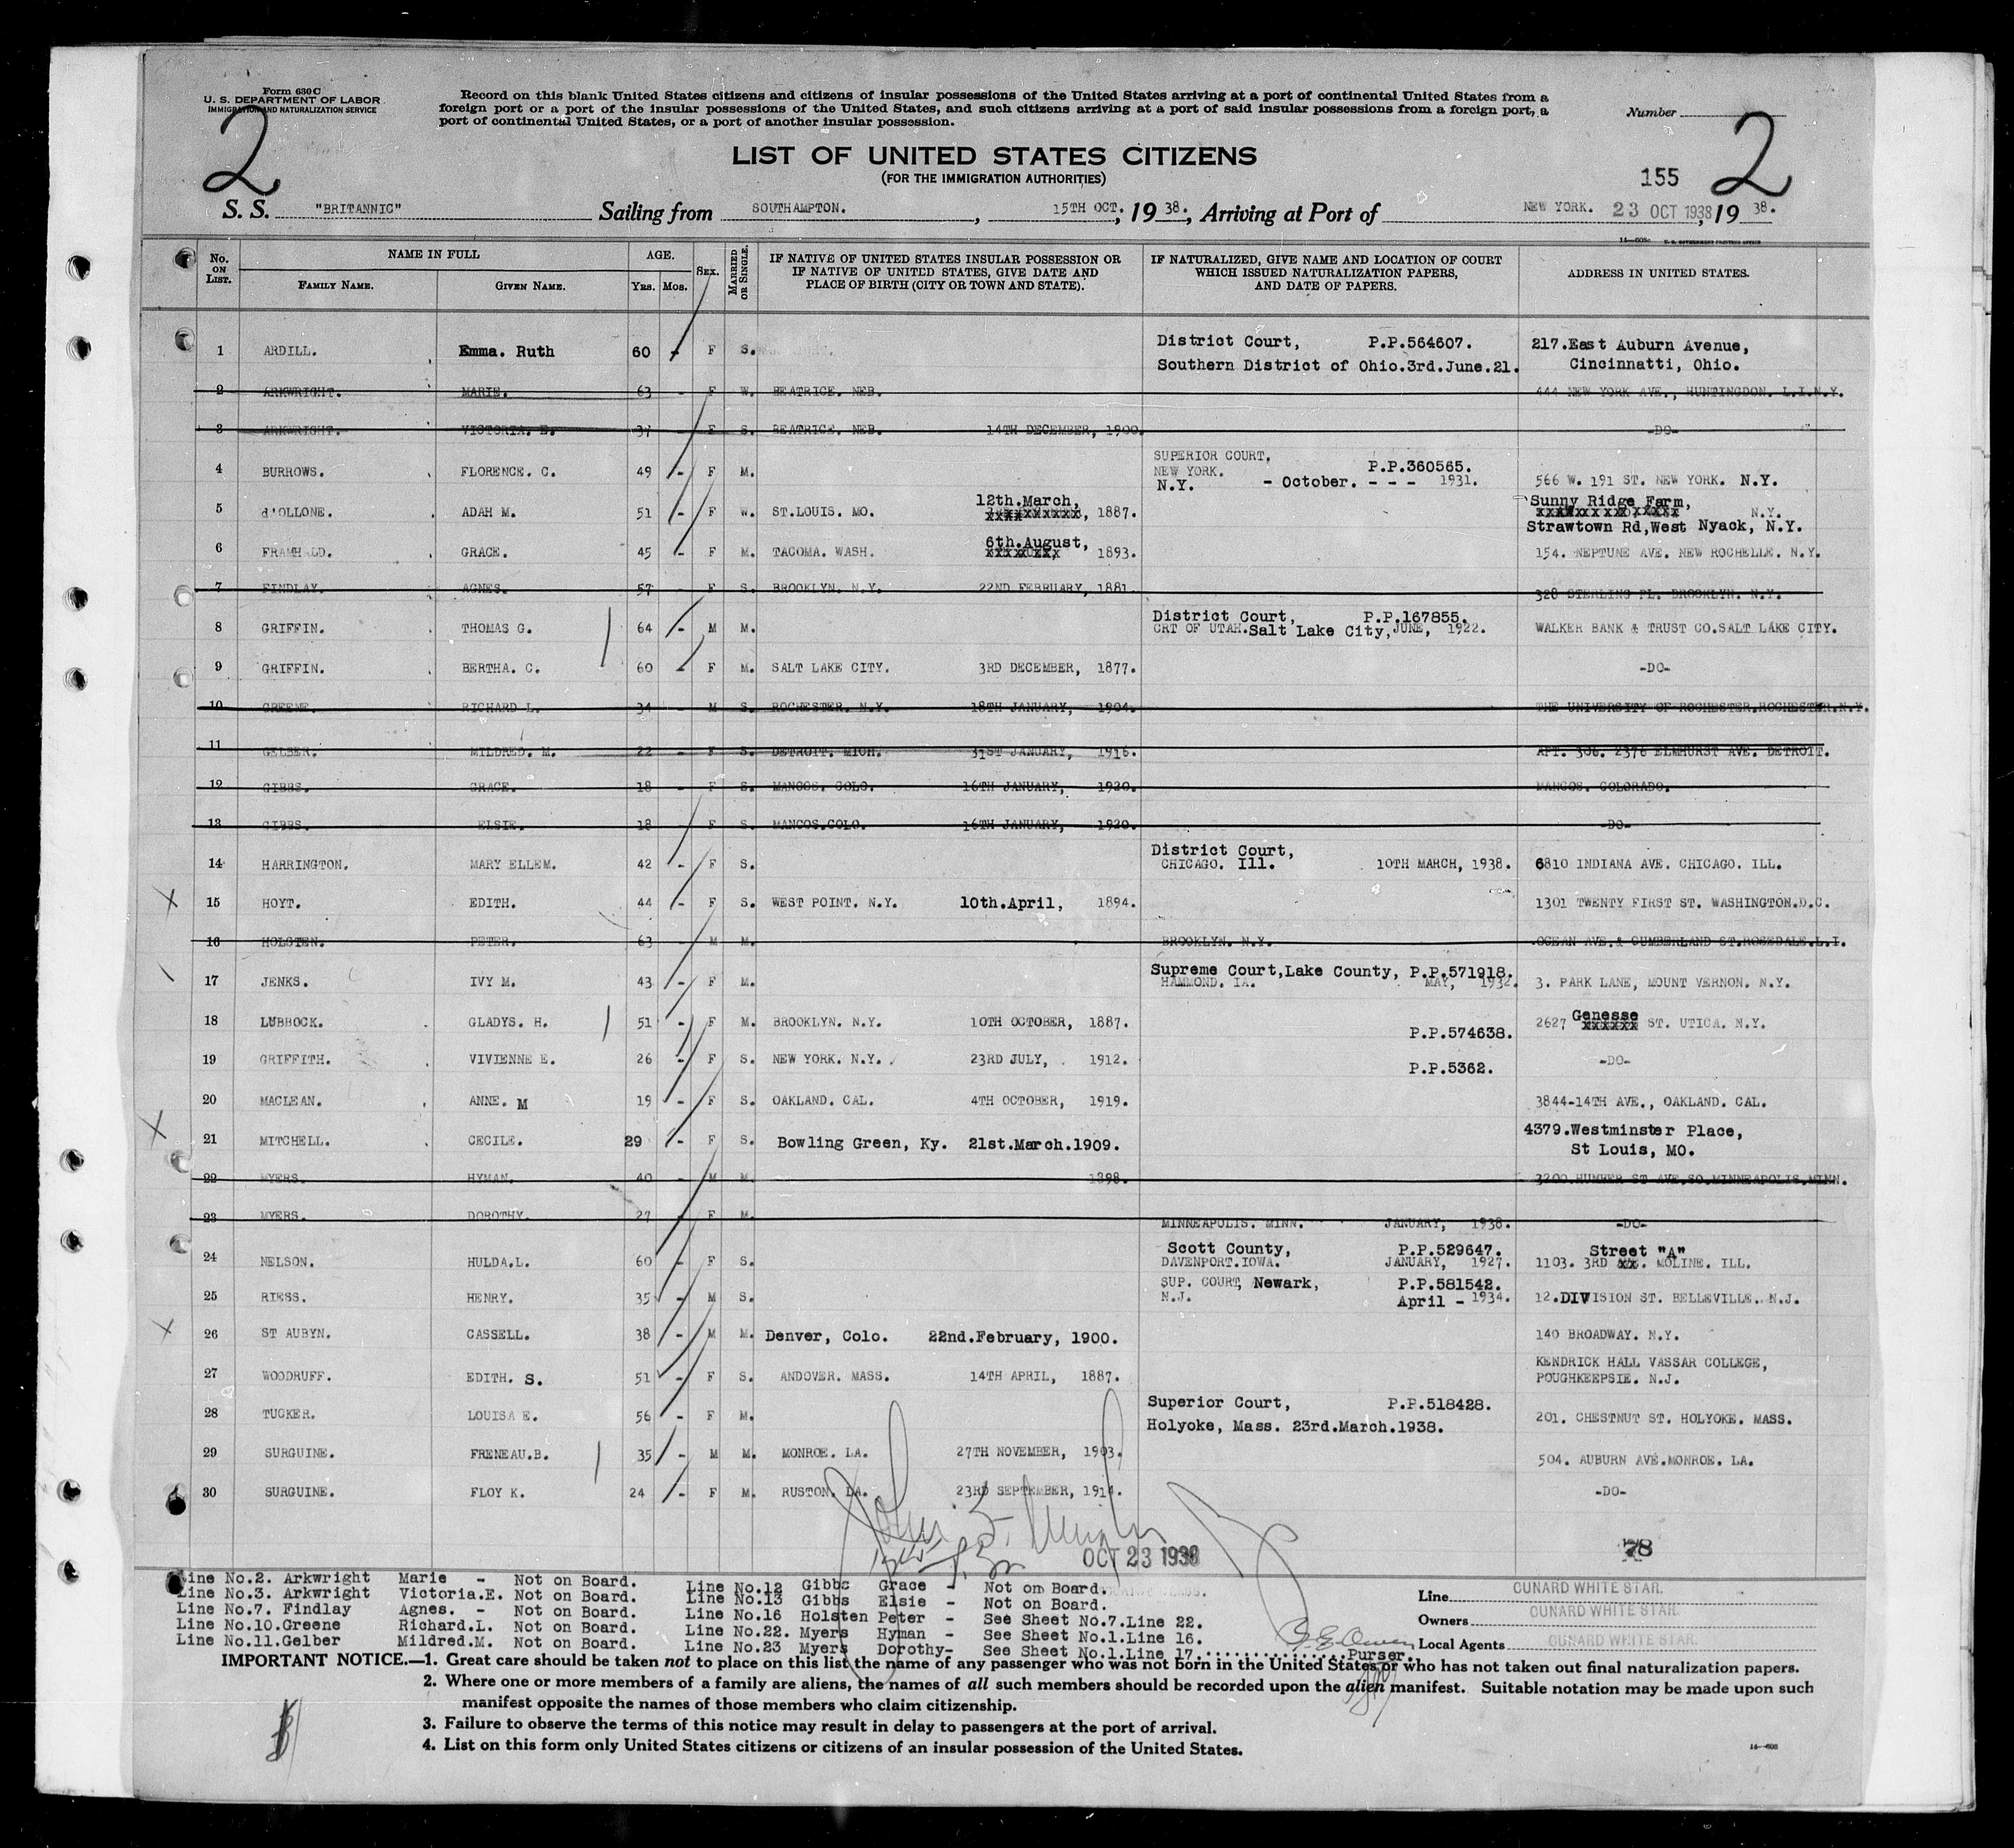 Form 630 C
U. S. DEPARTMENT OF LABOR
IMMIGRATION AND NATURALIZATION SERVICE
2
Record on this blank United States citizens and citizens of insular possessions of the United States arriving at a port of continental United States from a
foreign port or a port of the insular possessions of the United States, and such citizens arriving at a port of said insular possessions from a foreign port, a
port of continental United States, or a port of another insular possession.
Number
LIST OF UNITED STATES CITIZENS
(FOR THE IMMIGRATION AUTHORITIES)
155 2
S. S. "BRITANNIC" Sailing from SOUTHAMPTON. , 15TH OCT. , 19 38. , Arriving at Port of NEW YORK. 23 OCT 1938 , 19 38.
No. ON LIST. NAME IN FULL AGE. SEX. MARRIED OR SINGLE. IF NATIVE OF UNITED STATES INSULAR POSSESSION OR IF NATIVE OF UNITED STATES, GIVE DATE AND PLACE OF BIRTH (CITY OR TOWN AND STATE). IF NATURALIZED, GIVE NAME AND LOCATION OF COURT WHICH ISSUED NATURALIZATION PAPERS, AND DATE OF PAPERS. ADDRESS IN UNITED STATES.
FAMILY NAME. GIVEN NAME. YRS. MOS.
1 ARDILL. Emma. Ruth 60 - F S. District Court, P.P.564607. 217.East Auburn Avenue,
Southern District of Ohio.3rd.June.21. Cincinnatti, Ohio.
2 ARKWRIGHT. MARIE. 63 - F W. BEATRICE. NEB. 444 NEW YORK AVE., HUNTINGDON. L.I.N.Y.
3 ARKWRIGHT. VICTORIA. E. 37 - F S. BEATRICE. NEB. 14TH DECEMBER, 1900. -DO-
SUPERIOR COURT,
4 BURROWS. FLORENCE. C. 49 - F M. NEW YORK. P.P.360565.
N.Y. - October. - - - 1931. 566 W. 191 ST. NEW YORK. N.Y.
12th.March, Sunny Ridge Farm,
5 d'OLLONE. ADAH M. 51 - F W. ST.LOUIS. MO. xxxxxxxxxx, 1887. xxxxxxxxxxxxxxx N.Y.
Strawtown Rd,West Nyack, N.Y.
6th.August,
6 FRAMHALD. GRACE. 45 - F M. TACOMA. WASH. xxxxxxxx 1893. 154. NEPTUNE AVE. NEW ROCHELLE. N.Y.
7 FINDLAY. AGNES. 57 - F S. BROOKLYN. N.Y. 22ND FEBRUARY, 1881. 328 STERLING PL. BROOKLYN. N.Y.
District Court, P.P.167855.
8 GRIFFIN. THOMAS G. 64 - M M. CRT OF UTAH.Salt Lake City,JUNE, 1922. WALKER BANK & TRUST CO.SALT LAKE CITY.
9 GRIFFIN. BERTHA. C. 60 - F M. SALT LAKE CITY. 3RD DECEMBER, 1877. -DO-
10 GREENE. RICHARD L. 34 - M S. ROCHESTER. N.Y. 18TH JANUARY, 1904. THE UNIVERSITY OF ROCHESTER.ROCHESTER.N.Y.
11 GELBER. MILDRED. M. 22 - F S. DETROIT. MICH. 31ST JANUARY, 1916. APT. 306. 2376 ELMHURST AVE. DETROIT.
12 GIBBS. GRACE. 18 - F S. MANCOS. COLO. 16TH JANUARY, 1920. MANCOS. COLORADO.
13 GIBBS. ELSIE. 18 - F S. MANCOS.COLO. 16TH JANUARY, 1920. -DO-
District Court,
14 HARRINGTON. MARY ELLEM. 42 - F S. CHICAGO. Ill. 10TH MARCH, 1938. 6810 INDIANA AVE. CHICAGO. ILL.
15 HOYT. EDITH. 44 - F S. WEST POINT. N.Y. 10th.April, 1894. 1301 TWENTY FIRST ST. WASHINGTON.D.C.
16 HOLSTEN. PETER. 63 - M M. BROOKLYN. N.Y. OCEAN AVE.& CUMBERLAND ST.ROSEDALE.L.I.
Supreme Court,Lake County, P.P.571918.
17 JENKS. IVY M. 43 - F M. HAMMOND. IA. MAY, 1932. 3. PARK LANE, MOUNT VERNON. N.Y.
Genesse
18 LUBBOCK. GLADYS. H. 51 - F M. BROOKLYN. N.Y. 10TH OCTOBER, 1887. P.P.574638. 2627 xxxxxx ST. UTICA. N.Y.
19 GRIFFITH. VIVIENNE E. 26 - F S. NEW YORK. N.Y. 23RD JULY, 1912. P.P.5362. -DO-
20 MACLEAN. ANNE. M 19 - F S. OAKLAND. CAL. 4TH OCTOBER, 1919. 3844-14TH AVE., OAKLAND. CAL.
21 MITCHELL. CECILE. 29 - F S. Bowling Green, Ky. 21st.March.1909. 4379.Westminster Place,
St Louis, MO.
22 MYERS. HYMAN. 40 - M M. 1898. 3200 HUMBER ST AVE.SO.MINNEAPOLIS.MINN.
23 MYERS. DOROTHY. 27 - F M. MINNEAPOLIS. MINN. JANUARY, 1938. -DO-
Scott County, P.P.529647. Street "A"
24 NELSON. HULDA.L. 60 - F S. DAVENPORT.IOWA. JANUARY, 1927. 1103. 3RD xx. MOLINE. ILL.
SUP. COURT, Newark, P.P.581542.
25 RIESS. HENRY. 35 - M S. N.J. April - 1934. 12.DIVISION ST. BELLEVILLE. N.J.
26 ST AUBYN. CASSELL. 38 - M M. Denver, Colo. 22nd.February, 1900. 140 BROADWAY. N.Y.
KENDRICK HALL VASSAR COLLEGE,
27 WOODRUFF. EDITH. S. 51 - F S. ANDOVER. MASS. 14TH APRIL, 1887. POUGHKEEPSIE. N.J.
Superior Court, P.P.518428.
28 TUCKER. LOUISA E. 56 - F M. Holyoke, Mass. 23rd.March.1938. 201. CHESTNUT ST. HOLYOKE. MASS.
29 SURGUINE. FRENEAU.B. 35 - M M. MONROE. LA. 27TH NOVEMBER, 1903. 504. AUBURN AVE.MONROE. LA.
30 SURGUINE. FLOY K. 24 - F M. RUSTON. LA. 23RD SEPTEMBER, 1914. -DO-
OCT 23 1938
78
Line No.2. Arkwright Marie - Not on Board. Line No.12 Gibbs Grace - Not on Board.
Line No.3. Arkwright Victoria.E. Not on Board. Line No.13 Gibbs Elsie - Not on Board.
Line No.7. Findlay Agnes. - Not on Board. Line No.16 Holsten Peter - See Sheet No.7.Line 22.
Line No.10.Greene Richard.L. Not on Board. Line No.22. Myers Hyman - See Sheet No.1.Line 16.
Line No.11.Gelber Mildred.M. Not on Board. Line No.23 Myers Dorothy- See Sheet No.1.Line 17. Purser.
Line CUNARD WHITE STAR.
Owners CUNARD WHITE STAR.
Local Agents CUNARD WHITE STAR.
IMPORTANT NOTICE.—1. Great care should be taken not to place on this list the name of any passenger who was not born in the United States or who has not taken out final naturalization papers.
2. Where one or more members of a family are aliens, the names of all such members should be recorded upon the alien manifest. Suitable notation may be made upon such
manifest opposite the names of those members who claim citizenship.
3. Failure to observe the terms of this notice may result in delay to passengers at the port of arrival.
4. List on this form only United States citizens or citizens of an insular possession of the United States.